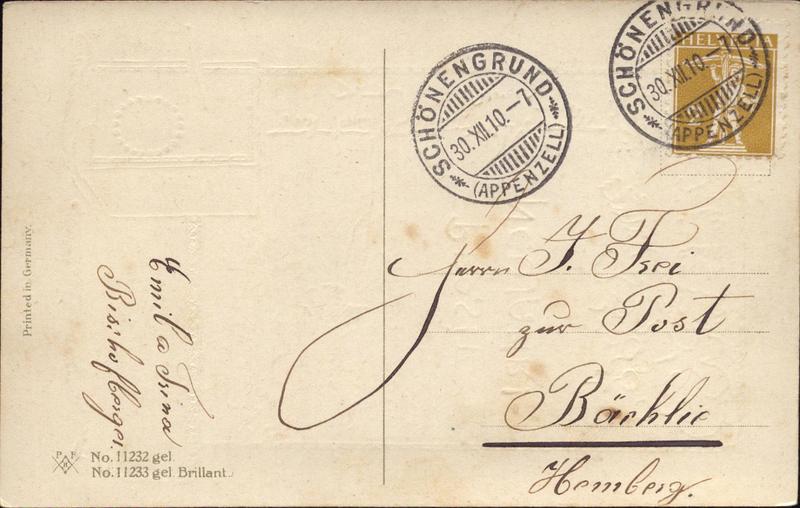 SCHÖNENGRUND
30.XII.10.–7
(APPENZELL)
HELVETIA
SCHÖNENGRUND
30.XII.10.–7
(APPENZELL)
Printed in Germany.
Emil a Trina
Bischofberger.
Herrn J. Frei
zur Post
Bächlie
Hemberg.
No. 11232 gel.
No. 11233 gel. Brillant.